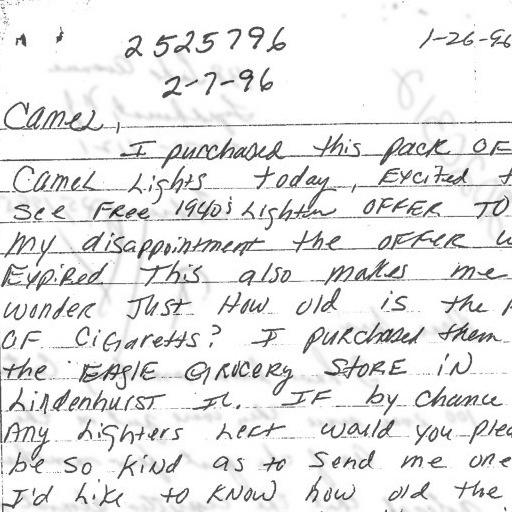 2525796
1-26-96
2-7-96
Camel,
I purchased this pack OF
Camel Lights today, Excited
See Free 1940's Lighter OFFER TO
my disappointment the OFFER
Expired This also makes me
wonder Just How old is the
OF Cigaretts? I purchased them
the EAGlE GROCERY STORE iN
Lindenhurst IL. IF by chance
Any Lighters Left would you
be so kind as to send me one
I'd Like to KNOW how old the